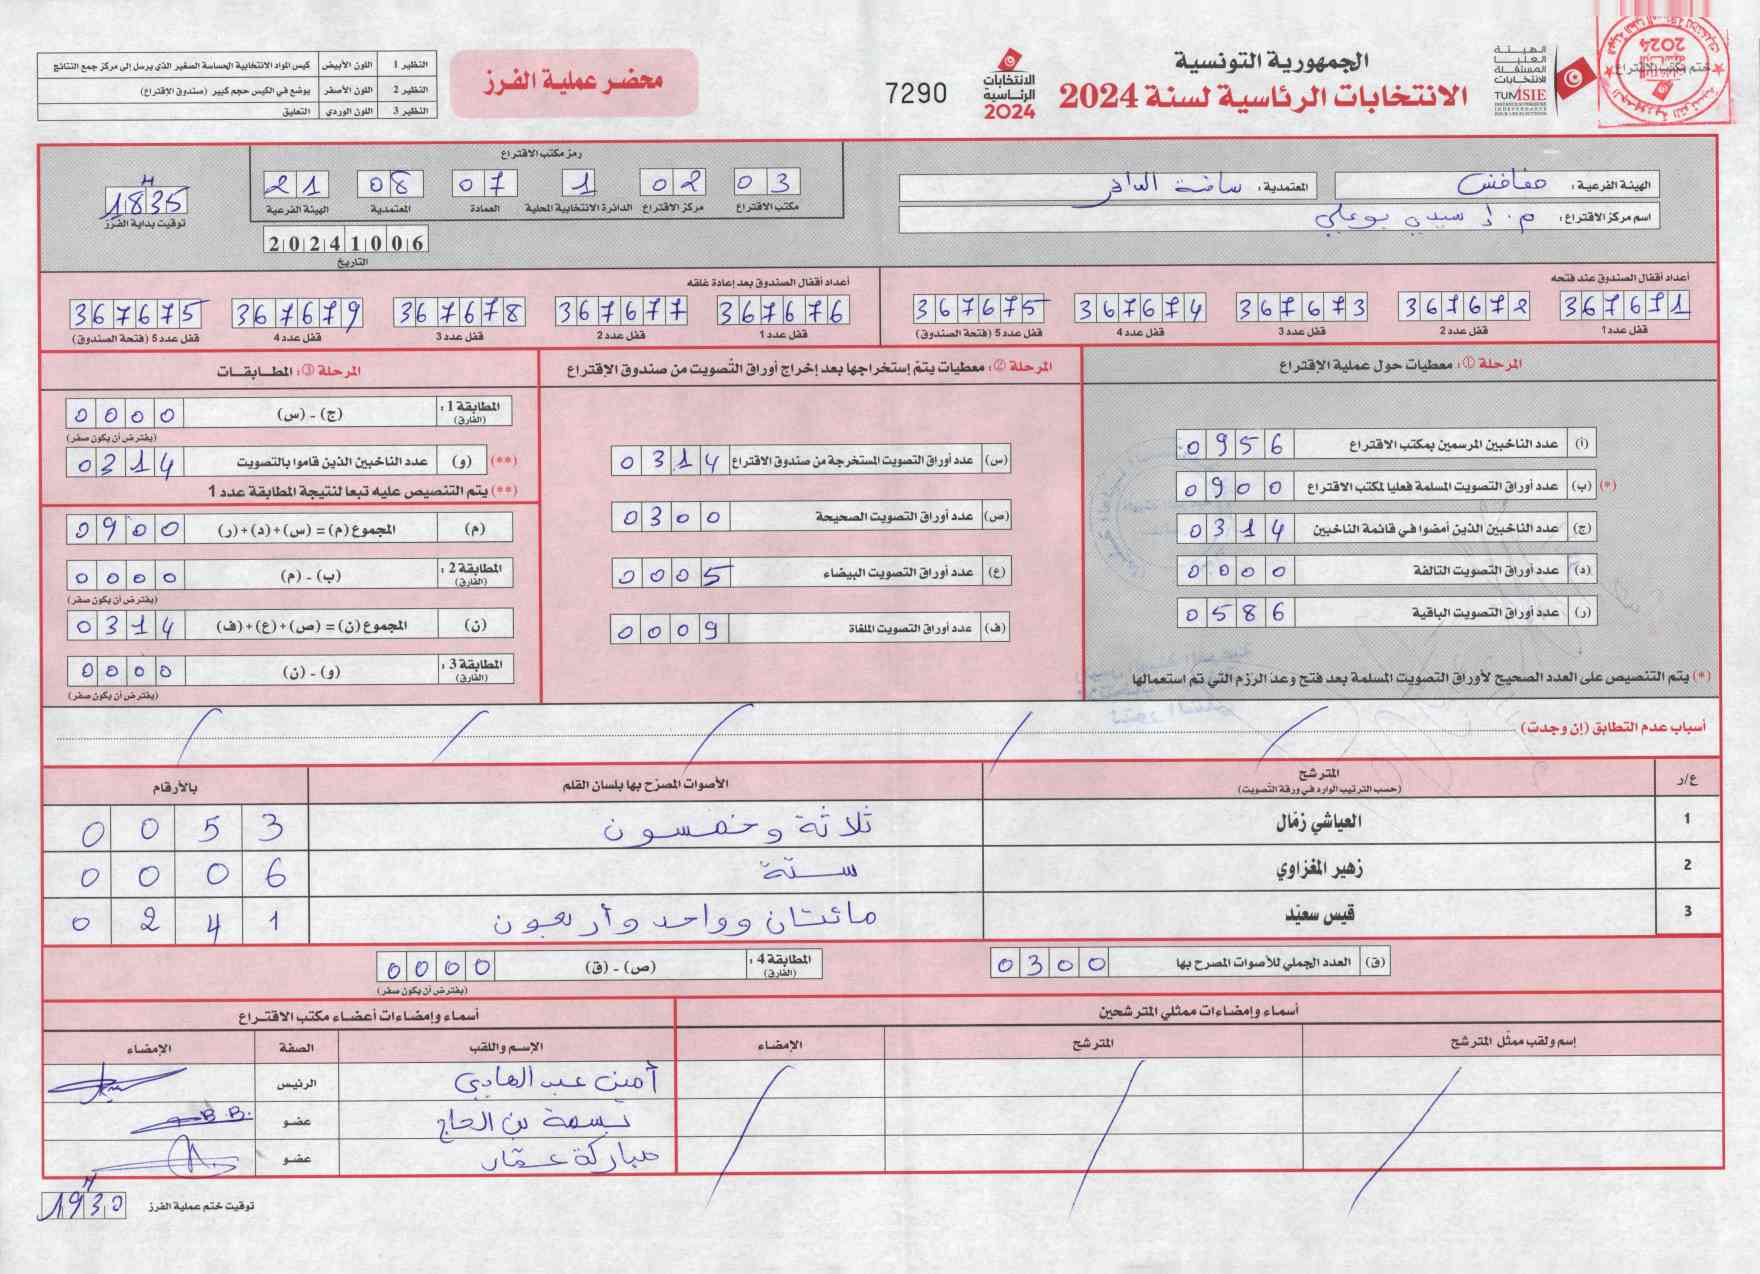 الجمهورية التونسية
الانتخابات الرئاسية لسنة 2024
الهيئة العليا المستقلة للانتخابات
TUNISIE
INSTANCE SUPÉRIEURE INDÉPENDANTE POUR LES ÉLECTIONS
ختم مكتب الاقتراع
الانتخابات الرئاسية 2024
7290
محضر عملية الفرز
النظير 1 اللون الأبيض كيس المواد الانتخابية الحساسة الصغير الذي يرسل إلى مركز جمع النتائج
النظير 2 اللون الأصفر يوضع في الكيس حجم كبير (صندوق الاقتراع)
النظير 3 اللون الوردي التعليق
الهيئة الفرعية : صفاقس المعتمدية : ساقية الداير
اسم مركز الاقتراع : م. إ سيدي بوعلي
رمز مكتب الاقتراع
03 02 1 07 08 21
مكتب الاقتراع مركز الاقتراع الدائرة الانتخابية المحلية العمادة المعتمدية الهيئة الفرعية
20241006
التاريخ
18H35
توقيت بداية الفرز
أعداد أقفال الصندوق عند فتحه
367671 367672 367673 367674 367675
قفل عدد 1 قفل عدد 2 قفل عدد 3 قفل عدد 4 قفل عدد 5 (فتحة الصندوق)
أعداد أقفال الصندوق بعد إعادة غلقه
367676 367677 367678 367679 367675
قفل عدد 1 قفل عدد 2 قفل عدد 3 قفل عدد 4 قفل عدد 5 (فتحة الصندوق)
المرحلة ①: معطيات حول عملية الإقتراع
(أ) عدد الناخبين المرسمين بمكتب الاقتراع 0956
(*) (ب) عدد أوراق التصويت المسلمة فعليا لمكتب الاقتراع 0900
(ج) عدد الناخبين الذين أمضوا في قائمة الناخبين 0314
(د) عدد أوراق التصويت التالفة 0000
(ر) عدد أوراق التصويت الباقية 0586
(*) يتم التنصيص على العدد الصحيح لأوراق التصويت المسلمة بعد فتح وعد الرزم التي تم استعمالها
المرحلة ②: معطيات يتم إستخراجها بعد إخراج أوراق التصويت من صندوق الإقتراع
(س) عدد أوراق التصويت المستخرجة من صندوق الاقتراع 0314
(ص) عدد أوراق التصويت الصحيحة 0300
(ع) عدد أوراق التصويت البيضاء 0005
(ف) عدد أوراق التصويت الملغاة 0009
المرحلة ③: المطابقات
المطابقة 1 : (الفارق) (ج) - (س) 0000
(يفترض أن يكون صفر)
(**) (و) عدد الناخبين الذين قاموا بالتصويت 0314
(**) يتم التنصيص عليه تبعا لنتيجة المطابقة عدد 1
(م) المجموع (م) = (س)+(د)+(ر) 0900
المطابقة 2 : (الفارق) (ب) - (م) 0000
(يفترض أن يكون صفر)
(ن) المجموع (ن) = (ص)+(ع)+(ف) 0314
المطابقة 3 : (الفارق) (و) - (ن) 0000
(يفترض أن يكون صفر)
أسباب عدم التطابق (إن وجدت)
ع/ر المترشح (حسب الترتيب الوارد في ورقة التصويت) الأصوات المصرّح بها بلسان القلم بالأرقام
1 العياشي زمّال ثلاثة وخمسون 0053
2 زهير المغزاوي ستة 0006
3 قيس سعيّد مائتان وواحد وأربعون 0241
(ق) العدد الجملي للأصوات المصرح بها 0300
المطابقة 4 : (الفارق) (ص) - (ق) 0000
(يفترض أن يكون صفر)
أسماء وإمضاءات ممثلي المترشحين
إسم ولقب ممثّل المترشح المترشح الإمضاء
أسماء وإمضاءات أعضاء مكتب الاقتراع
الإسم واللقب الصفة الإمضاء
أمين عبد الهادي الرئيس
بسمة بن الحاج عضو B.B.
مباركة عمّار عضو
توقيت ختم عملية الفرز 19H30